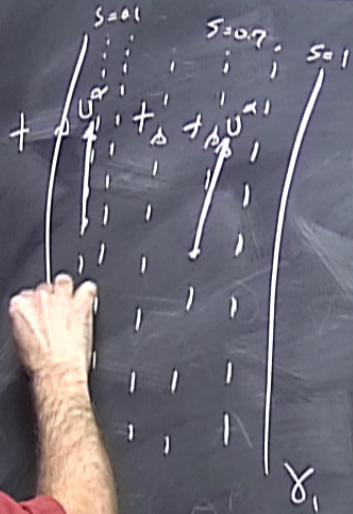 S=0.1
S=0.7
S=1
t
U^α
t
t
U^α
γ₁